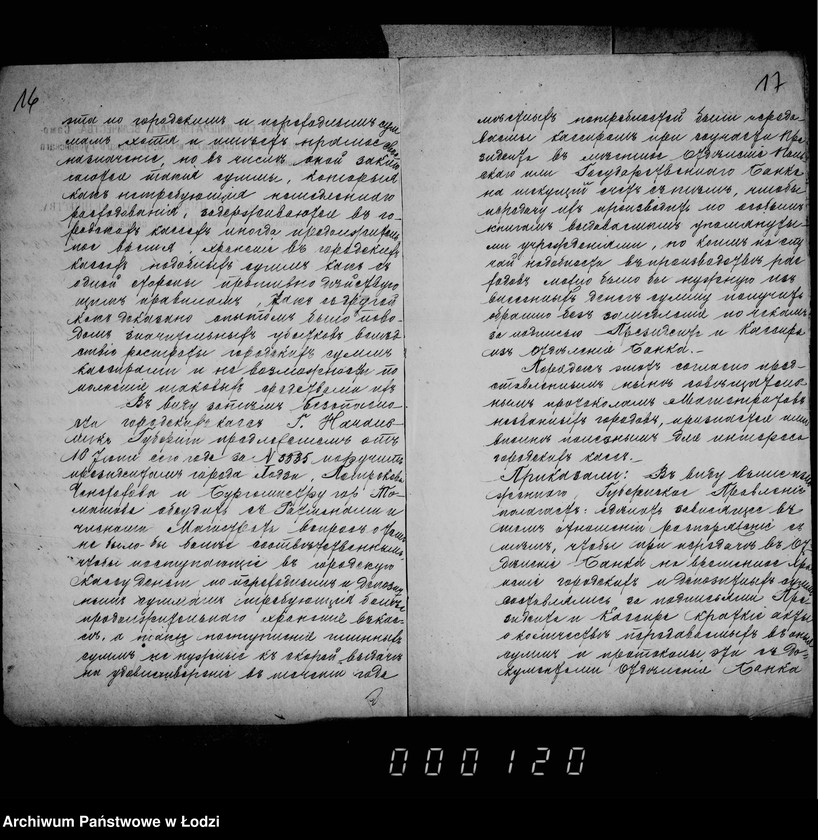 16
эта по городскимъ и переводнымъ сум
мамъ хотя и имѣетъ прямое свое
назначеніе, но въ числѣ оной заклю
чаются такія суммы, которыя
какъ нетребующія немедленнаго
расходованія, задерживаются въ го
родскихъ кассахъ иногда продолжитель
ное время, храненіе въ городскихъ
кассахъ подобныхъ суммъ какъ съ
одной стороны противно дѣйствую
щимъ правиламъ, такъ съ другой
какъ доказано опытомъ было пово
домъ значительныхъ убытковъ вслѣд
ствіе растраты городскихъ суммъ
кассирами и не возможности по
полненія таковыхъ средствами ихъ
Въ виду затѣмъ безопасно
сти городскихъ кассъ Г. Началь
никъ Губерніи предложеніемъ отъ
10 Іюня сего года за № 3535 поручилъ
президентамъ города Лодзи,
и Бургомистру гор. То
машова обсудить съ Ратманами и
членами Магистрата вопросъ о томъ
не было-бы болѣе соотвѣтственнымъ
чтобы поступающіе въ городскую
кассу деньги по переводнымъ и депозит
нымъ суммамъ требующія болѣе
продолжительнаго храненія въ кас-
сѣ, а также поступленія
суммъ не нужные къ скорой выдачѣ
на удовлетвореніе въ теченіи года
17
мѣстныхъ потребностей были переда-
ваемы кассиромъ при участіи Пре
зидента въ мѣстное Отдѣленіе Поль
скаго или Государственнаго Банка
на текущій счетъ съ тѣмъ, чтобы
передачу ихъ производить по особымъ
книгамъ выдаваемымъ упомянуты-
ми учрежденіями, по коимъ по слу
чаю надобности въ производствѣ рас
ходовъ можно было бы нужную изъ
внесенныхъ денегъ сумму получить
обратно безъ замедленія по чекамъ
за подписью Президента и Кассира
изъ Отдѣленія Банка.-
Порядокъ этотъ согласно пред-
ставленнымъ нынѣ совѣщатель-
нымъ протоколамъ Магистратовъ
названныхъ городовъ, признается ими
вполнѣ полезнымъ для интереса
городскихъ кассъ.-
Приказали: Въ виду выше изло
женнаго, Губернское Правленіе
полагаетъ: сдѣлать зависящее въ
томъ отношеніи распоряженіе съ
тѣмъ, чтобы при передачѣ въ От
дѣленіе Банка на временное хра
неніе городскихъ и депозитныхъ суммъ
составлялись за подписями Пре-
зидента и Кассира краткіе акты
о количествѣ передаваемыхъ въ оные
суммъ и протоколы эти съ до-
кументами Отдѣленія Банка
000120
Archiwum Państwowe w Łodzi